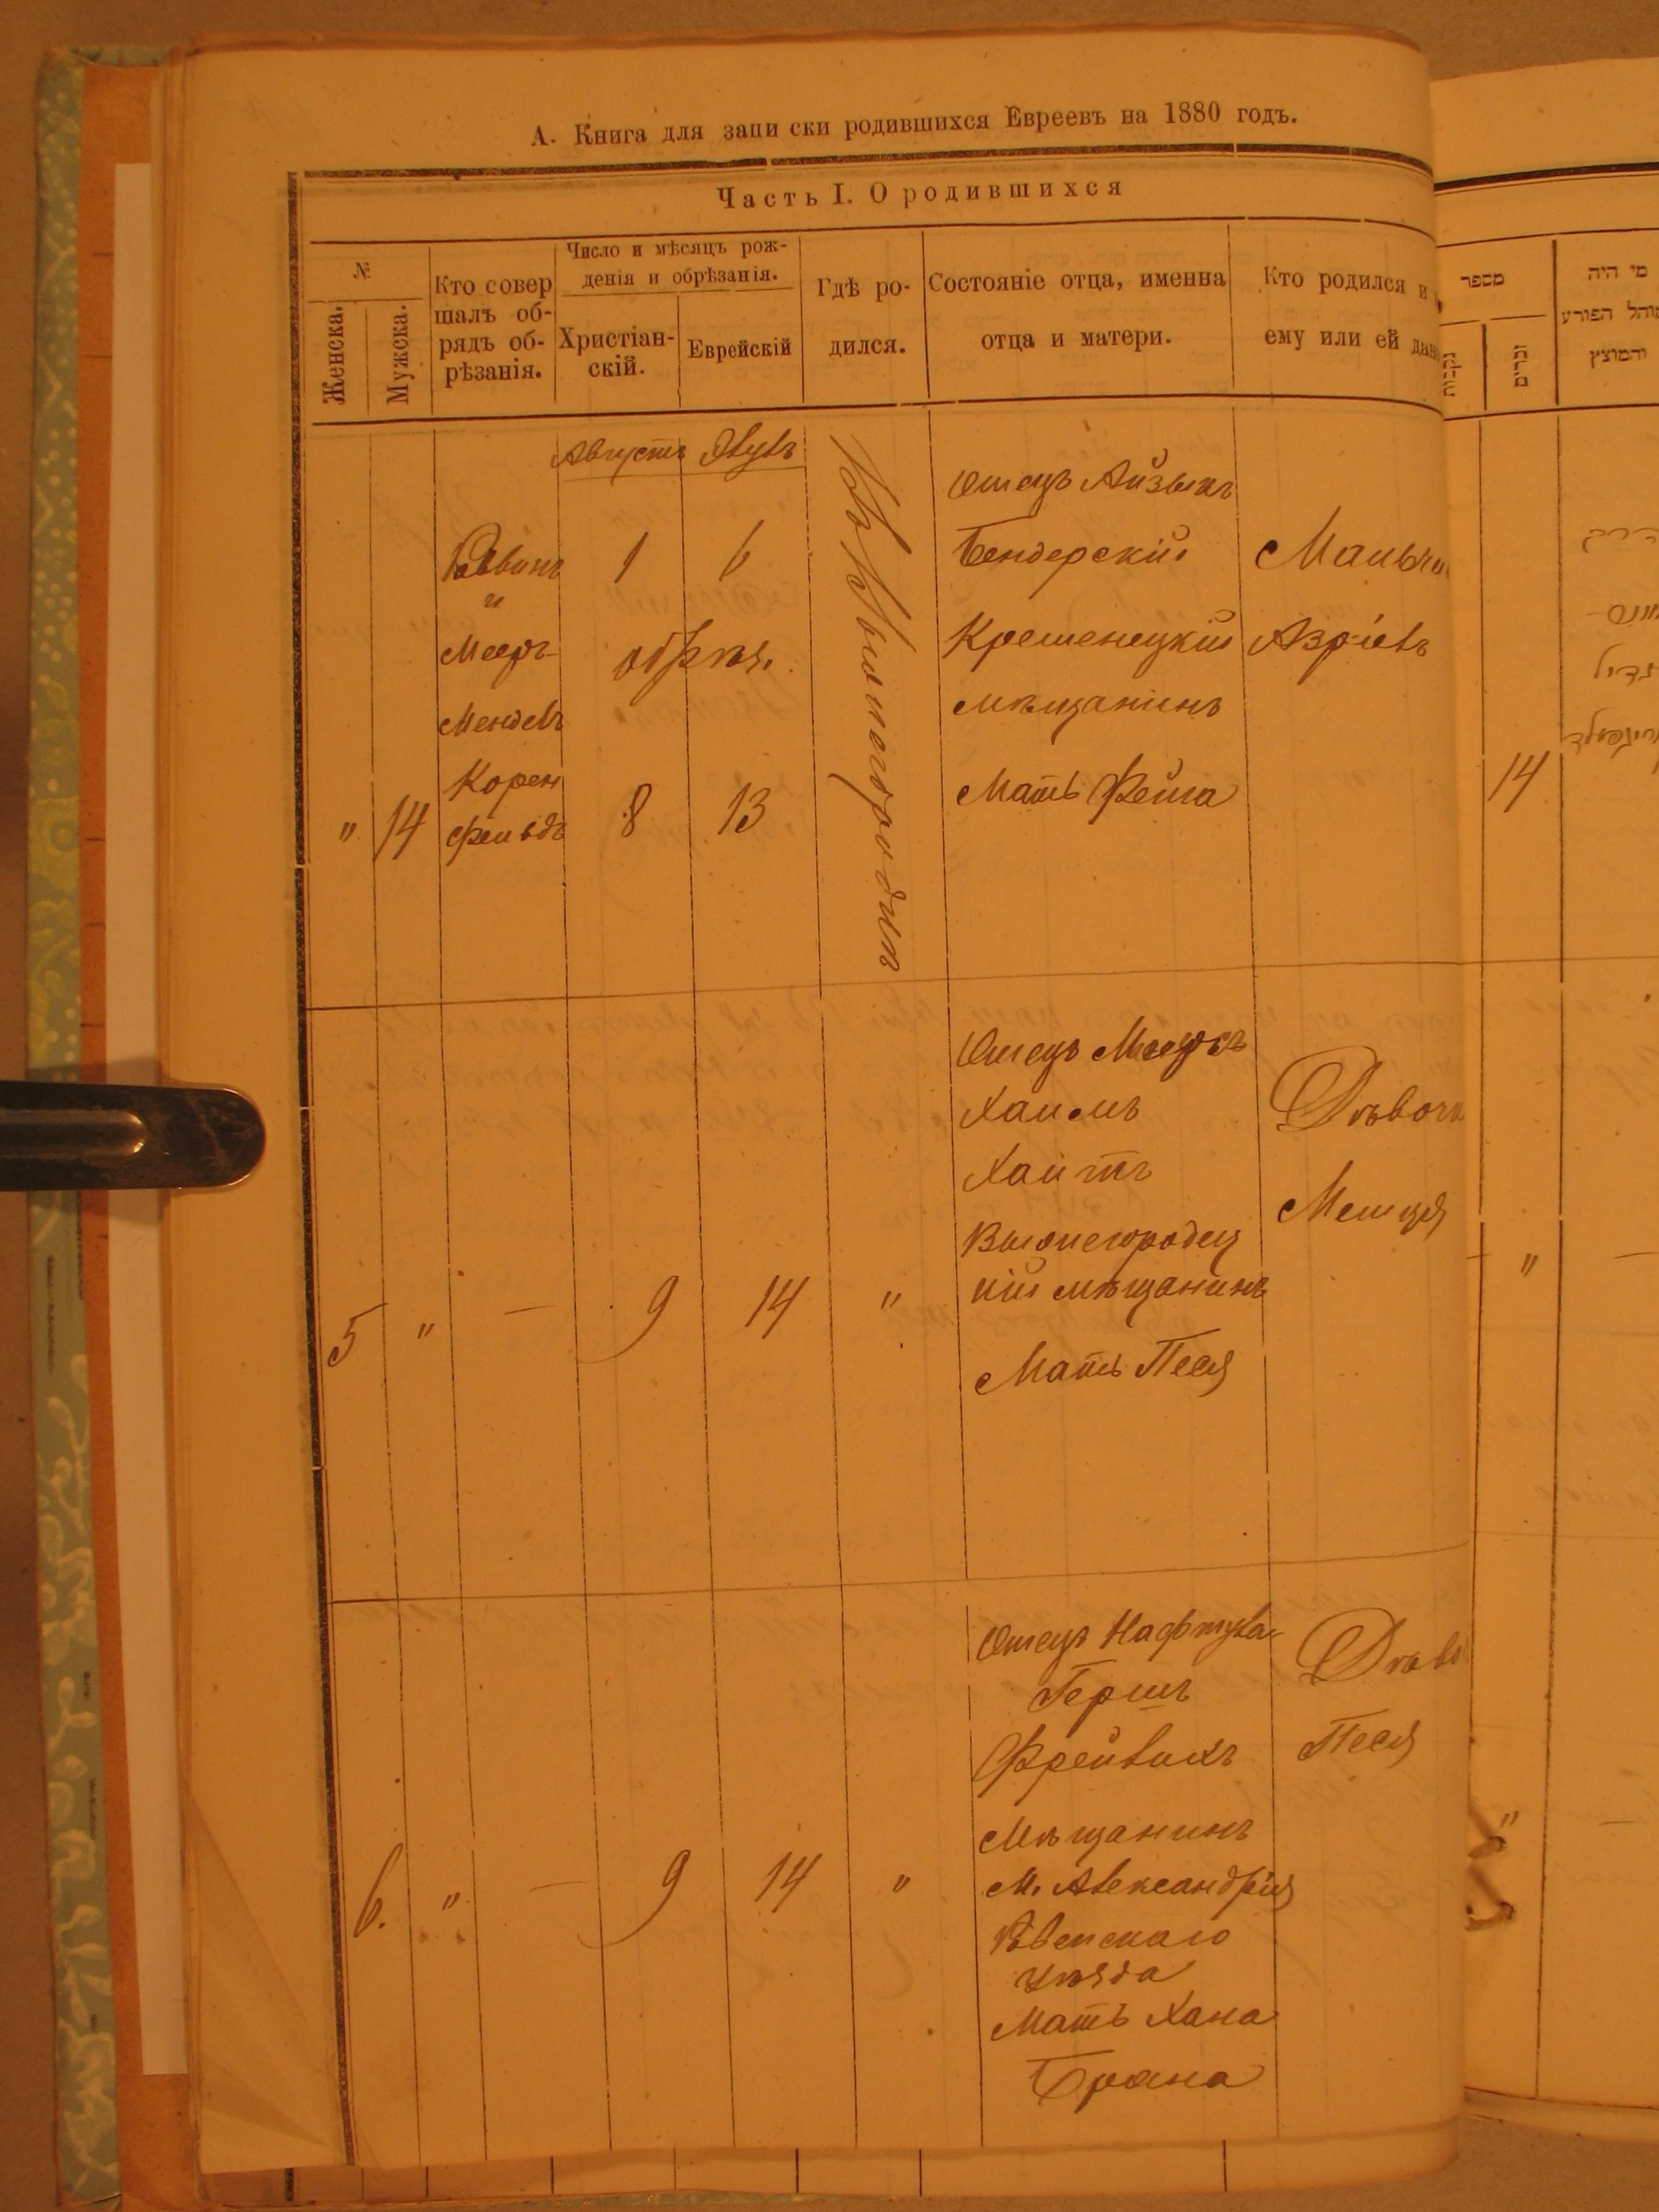 А. Книга для записки родившихся Евреевъ на 1880 годъ.
Часть I. О родившихся
№
Женска.
Мужска.
Кто совер
шалъ об-
рядъ об-
рѣзанія.
Число и мѣсяцъ рож-
денія и обрѣзанія.
Христіан-
скій.
Еврейскій
Гдѣ ро-
дился.
Состояніе отца, именна
отца и матери.
Кто родился и
ему или ей дан
מספר
זכרים
מי היה
הפורע
והמוצץ
Августъ
"
14
и
Мееръ
Мендель
Корен
фельдъ
1
6
обрѣз.
8
13
Отецъ Айзыкъ
Бендерскій
Кременецкій
мѣщанинъ
Мать Фейга
Мальчи
Азріель
14
5
"
—
9
14
"
Отецъ
Хаимъ
Хаитъ
Вышегородец
кій мѣщанинъ
Мать Песя
Дѣвочк
"
6.
"
—
9
14
"
Отецъ Нафтула
Гершъ
Мѣщанинъ
М. Александрія
Ровенскаго
уѣзда
Мать Хана
Брана
Дѣво
Песя
"